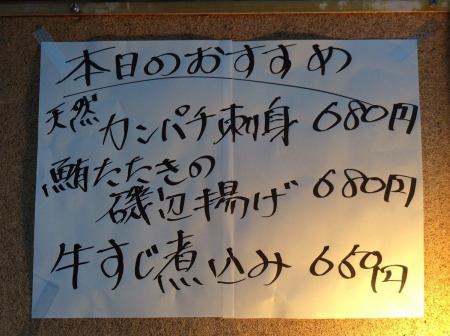 本日のおすすめ
天然カンパチ刺身 680円
鮪たたきの
磯辺揚げ 680円
牛すじ煮込み 660円